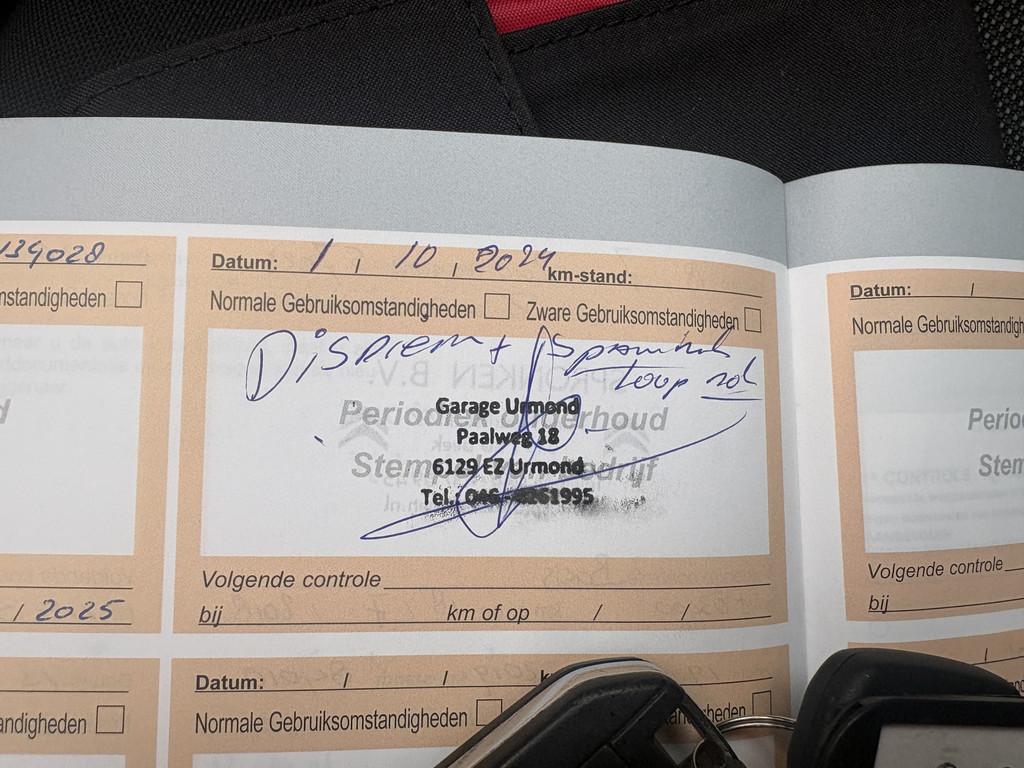 134028
nstandigheden
/ 2025
andigheden
Datum: 1 / 10 / 2024 km-stand:
Normale Gebruiksomstandigheden Zware Gebruiksomstandigheden
+
Loop rol
Periodiek onderhoud
Stempel bedrijf
Garage Urmond
Paalweg 18
6129 EZ Urmond
Tel.: 046 - 4261995
Volgende controle
bij km of op / /
Datum: / /
Normale Gebruiksomstandigheden
heden
Datum: /
Normale Gebruik
Period
Stem
Volgende controle
bij